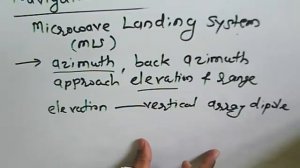 Microwave Landing System
(MLS)
→ azimuth, back azimuth
approach elevation & range
elevation — vertical array dipole